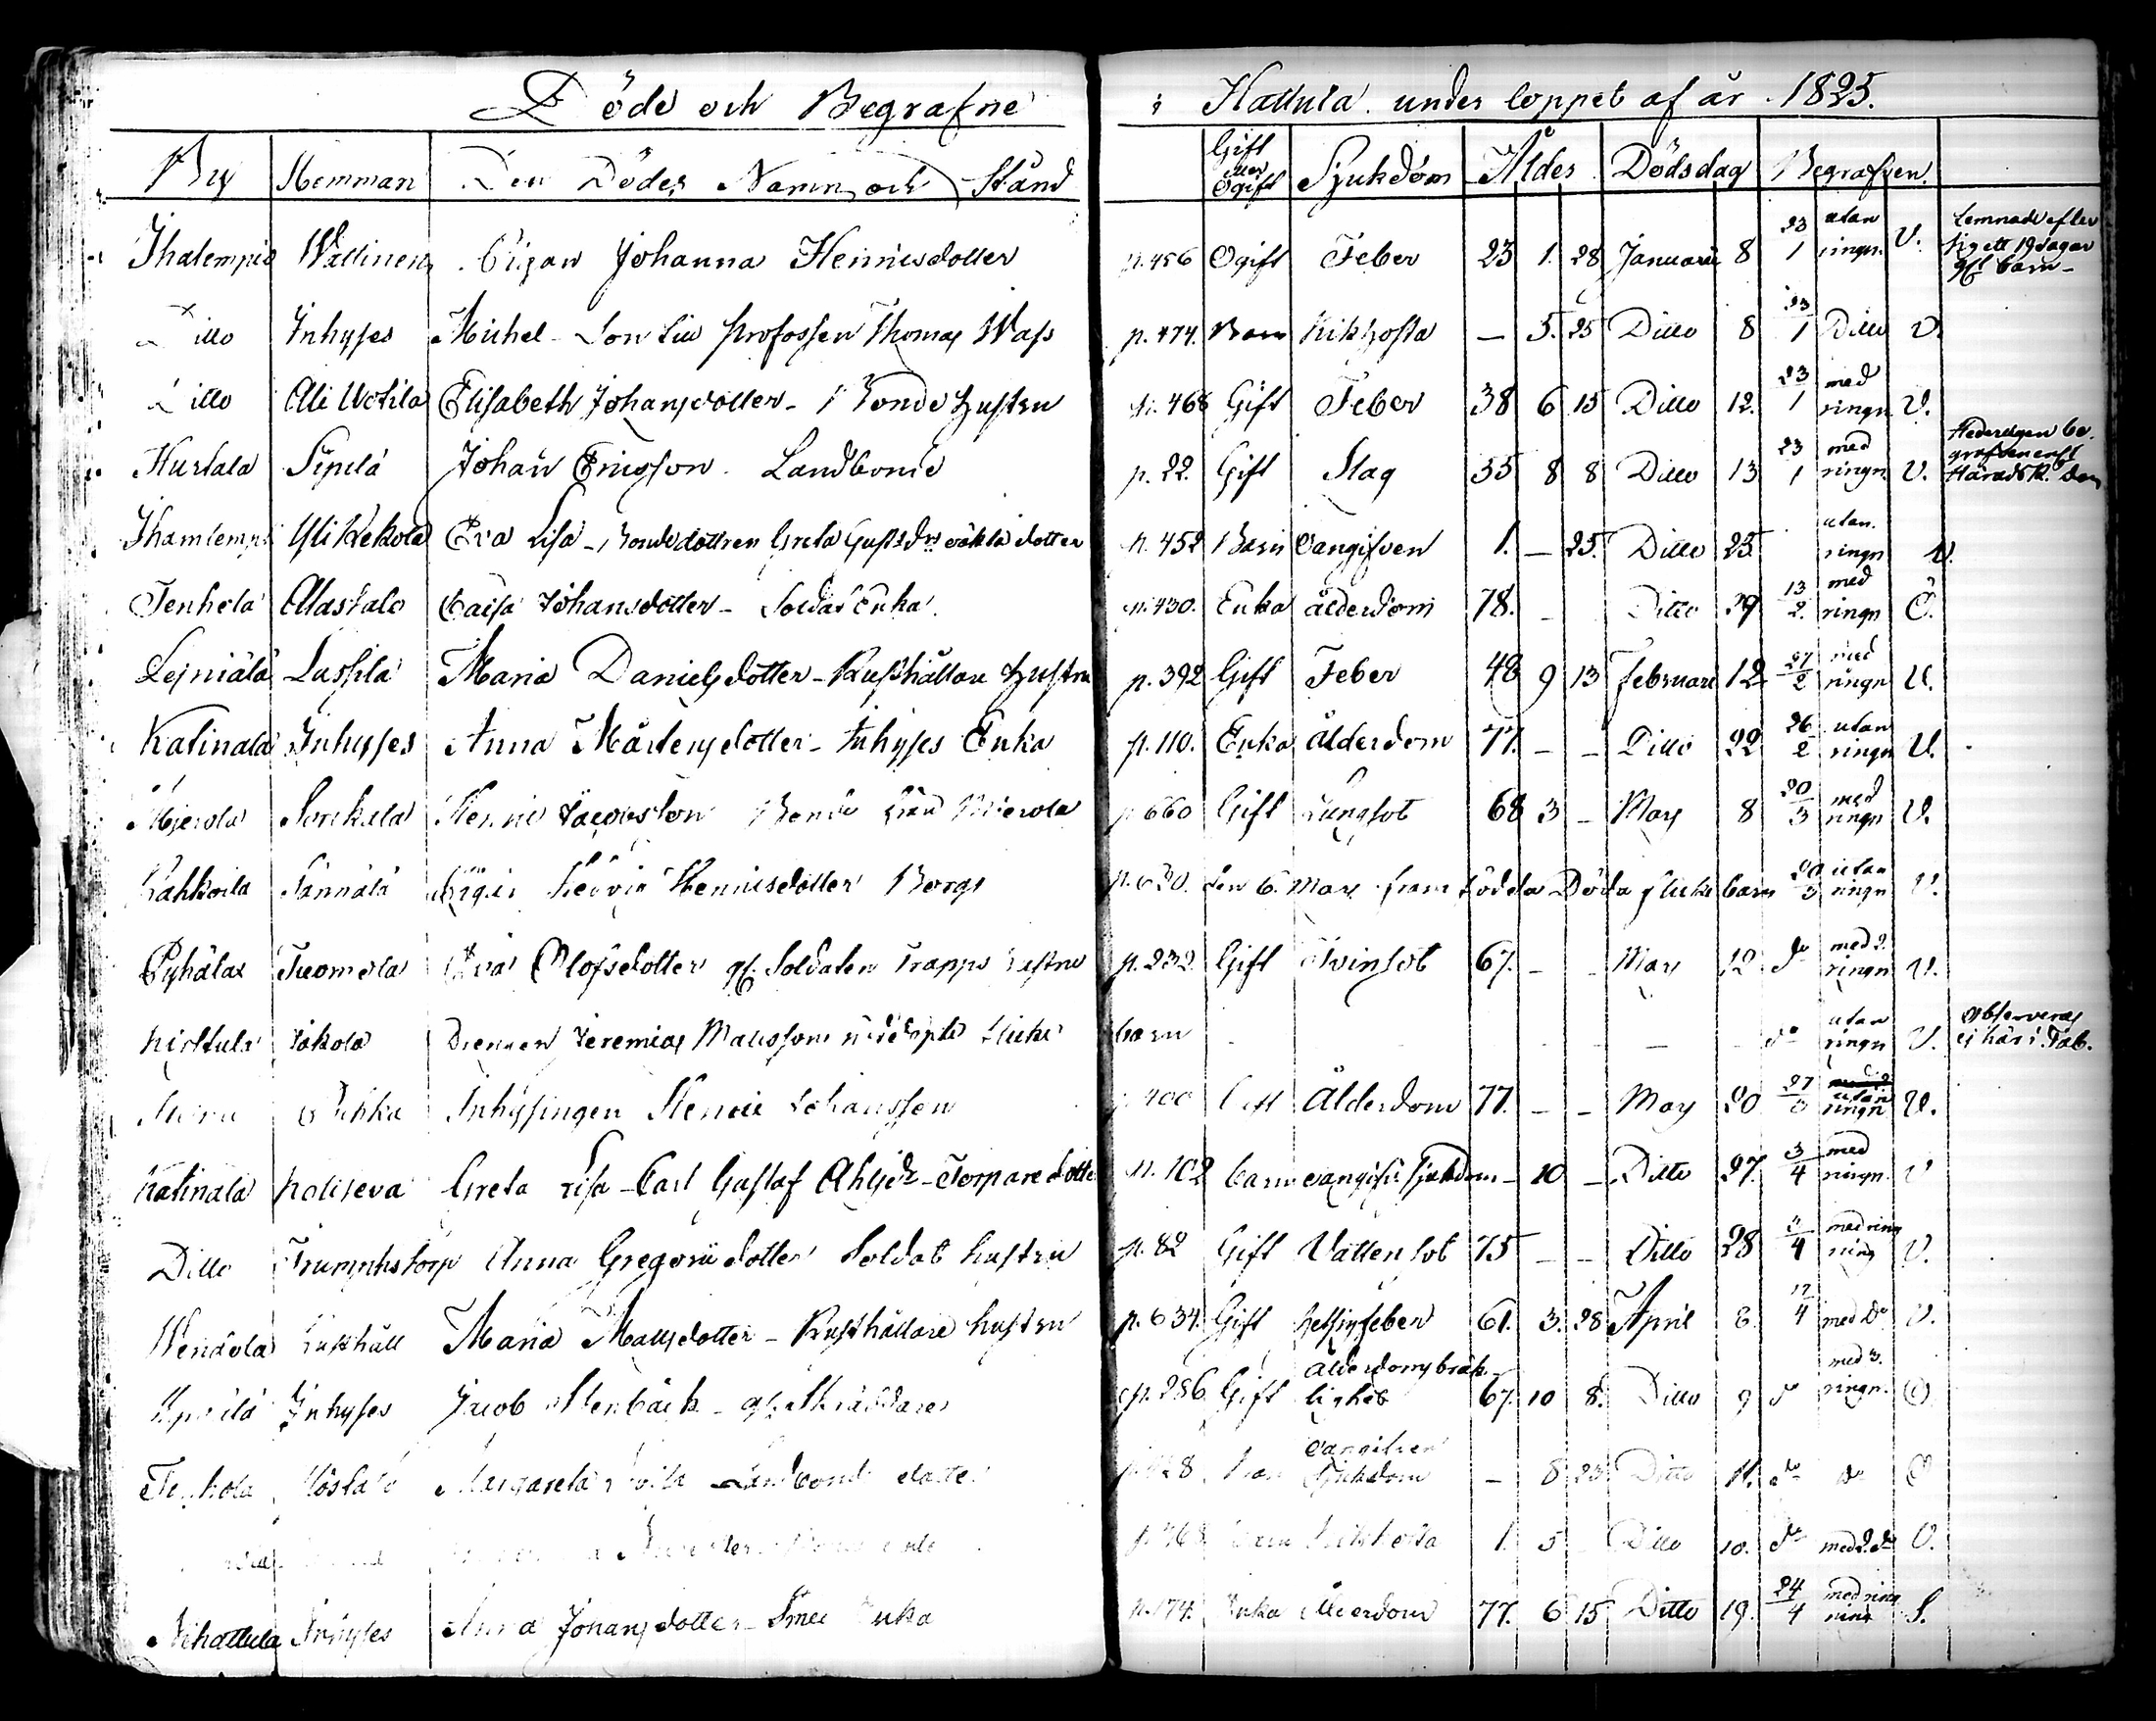 Döde och Begrafne i Hattula under loppet af år 1825.
By Hemman Den Dödes Namn och Stånd Gift eller Ogift Sjukdom Ålder Dödsdag Begrafven
Ihalempi Wallinen Pigan Johanna Henricsdotter p. 456 Ogift Feber 23 1. 28 Januarii 8 23/1 utan ringn. U. Lemnade efter sig ett 19 dagar gl. barn
Ditto Inhyses Michel Son till Profossen Thomas Wass p. 474. Barn Kikhosta — 5. 25 Ditto 8 23/1 Ditto U.
Ditto Ali Uotila Elisabeth Johansdotter - Bonde hustru p. 468 Gift Feber 38 6 15 Ditto 12. 23/1 med ringn U.
Hurtala Sipilä Johan Ericsson Landbonde p. 22. Gift Slag 55 8 8 Ditto 13 23/1 med ringn. U.
Yli Kekola Eva Lisa - Bondedottren Greta oäkta dotter p. 452 Barn Oangifven 1. — 25. Ditto 25 utan ringn U.
Tenhola Alastalo Caisa Johansdotter - Soldat Enka. p. 430. Enka ålderdom 78. - Ditto 29 13/2. med ringn Ö.
Leiniälä Lassila Maria Danielsdotter - Rusthållare hustru p. 392 Gift Feber 48 9 13 Februarii 12 27/2 med ringn U.
Katinala Inhyses Anna Mårtensdotter - Inhyses Enka p. 110. Enka Ålderdom 77. - - Ditto 22 26/2 utan ringn U.
Mierola Sorkala Henric Jacobsson Bonde från Mierola p. 660 Gift Lungsot 68 3 - Mars 8 20/3 med ringn U.
Kahkoila Pigan Hedvig Henricsdotter Borgs p. 630. den 6 Mars fram födda Döda flicke barn 20/3 utan ringn U.
Pyhälax Tuomola Eva Olofsdotter gl. Soldaten Trapps hustru p. 232. Gift Tvinsot 67. - - Mars 12 do med 2. ringn U.
Jakola Drengen Jeremias Mattssons nöddöpte flicke barn - - - - do utan ringn U. observeras ej här i Tab.
Inhysingen Henric Johansson p. 400 Gift Ålderdom 77. - - Mars 20 27/3 utan ringn U.
Katinala Greta Lisa - Carl Gustaf - Torpare dotter p. 102 barn oangifv. sjukdom - 10 - Ditto 27. 3/4 med ringn. U
Ditto Anna Gregorii dotter Soldat hustru p. 82 Gift Vatten sot 75 - - Ditto 28 3/4 med ring ning U.
Rusthåll Maria Mattsdotter - Rusthållare hustru p. 634 Gift hetsig feber 61. 3. 28 April 8. 17/4 med do U.
Inhyses Jacob Stenbäck - gl. Skräddare p. 286 Gift Ålderdoms bräcklighet 67. 10 8. Ditto 9 do med 3. ringn. Ö
Tenhola Margareta Landbonde dotter Oangifven Sjukdom - 8 23 Ditto 11. do do Ö
Kikhosta 1. 5 Ditto 10. do med 2. do U.
Nihattula Inhyses Anna Johansdotter - Smed Enka p. 174. Enka Ålderdom 77. 6 15 Ditto 19. 24/4 med ring ning S.